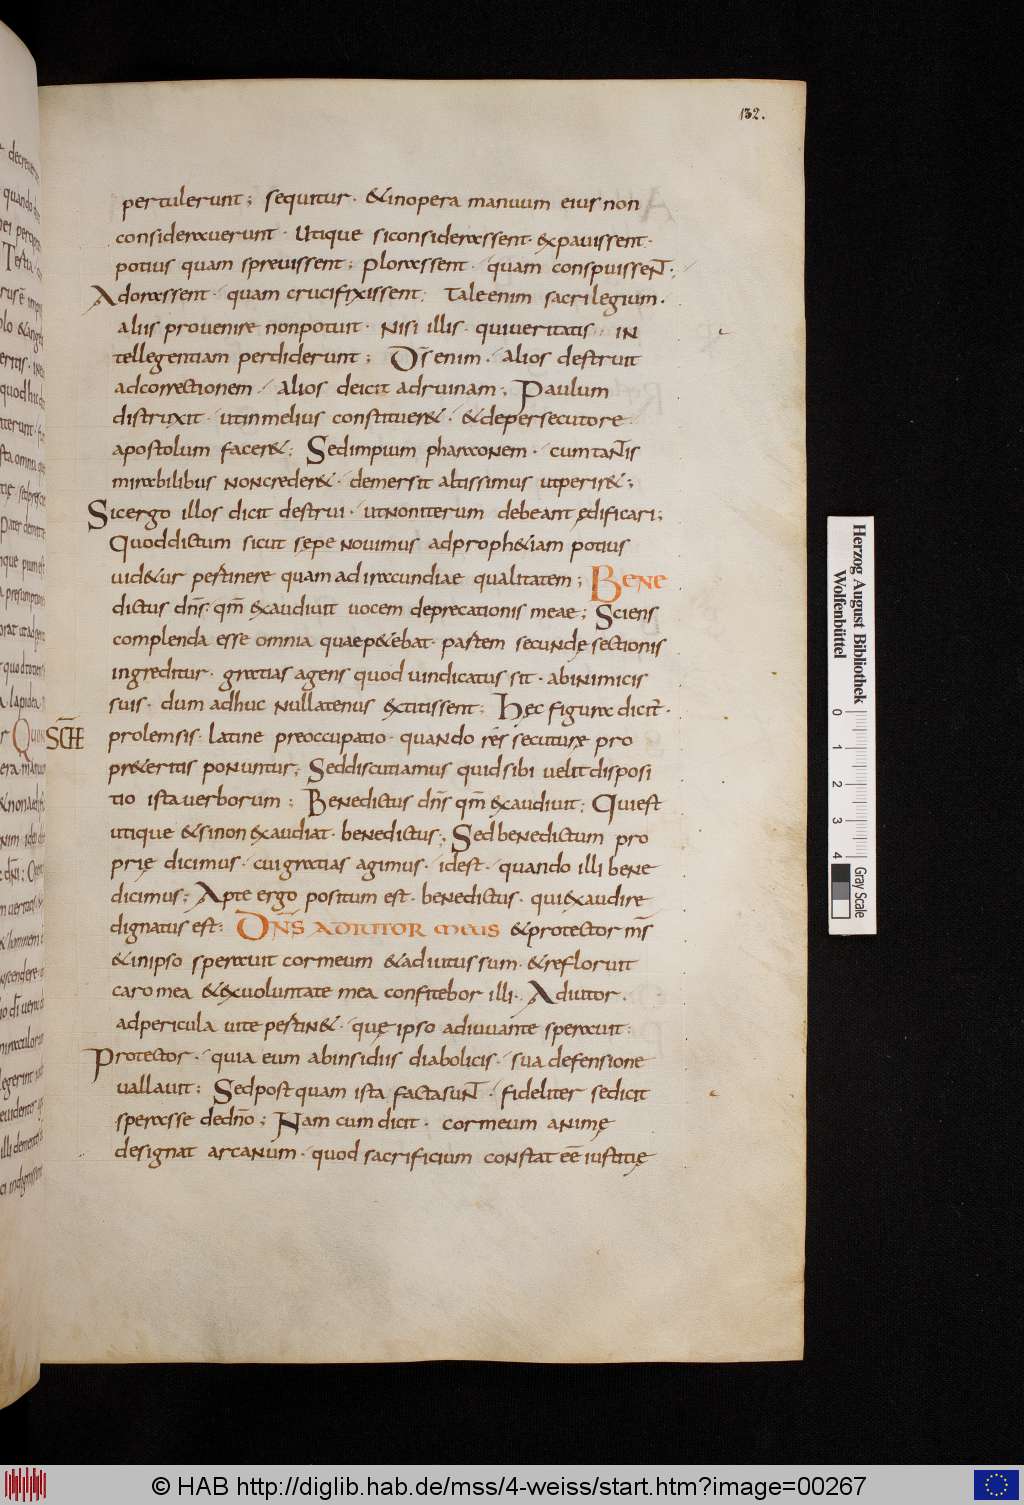 132.
pertulerunt; sequitur· &inopera manuum eius non
considerauerunt · Utique siconsiderassent· expauissent·
potius quam spreuissent; plorassent · quam conspuissent·;
Adorassent · quam crucifixissent; Tale enim sacrilegium·
aliis prouenire nonpotuit · Nisi illis· quiueritatis · in
tellegentiam perdiderunt; Ds̄ enim · alios destruit
adcorrectionem · alios deicit adruinam; Paulum
distruxit · utinmelius constituer& · &depersecutore
apostolum facer&; Sedimpium pharaonem · cumtantis
mirabilibus noncreder& · demersit altissimus utperir&;
Sicergo illos dicit destrui · utnoniterum debeant ędificari;
Quoddictum sicut sępe nouimus adproph&iam potius
uid&ur pertinere quam adiracundiae qualitatem; Bene
dictus dn̄s· qm̄ exaudiuit uocem deprecationis meae; Sciens
complenda esse omnia quaep&ebat· partem secundę sectionis
ingreditur· gratias agens quod uindicatus sit · abinimicis
suis · dum adhuc nullatenus extitissent; Hęc figura dicitr̄·
prolemsis · latine preoccupatio · quando rēs secuturę pro
SCHE
pr&eritis ponuntur; Seddiscutiamus quidsibi uelit disposi
tio ista uerborum; Benedictus dn̄s qm̄ exaudiuit; Quiest
utique &sinon exaudiat · benedictus; Sed benedictum pro
prię dicimus · cuigratias agimus · idest · quando illi bene
dicimus; Apte ergo positum est · benedictus · qui exaudire
dignatus est; Dn̄s adiutor meus &protector ms̄
&inipso sperauit cormeum &adiutus sum · &refloruit
caro mea &exuoluntate mea confitebor illi · Adiutor ·
adpericula uite pertin& · quę ipso adiuuante sperauit;
Protector · quia eum abinsidiis diabolicis · sua defensione
uallauit; Sedpost quam ista facta sunt · fideliter sedicit
sperasse dedn̄o; Nam cum dicit · cormeum animę
designat arcanum · quod sacrificium constat eē iustitię
Herzog August Bibliothek
Wolfenbüttel
0 1 2 3 4
Gray Scale
© HAB http://diglib.hab.de/mss/4-weiss/start.htm?image=00267